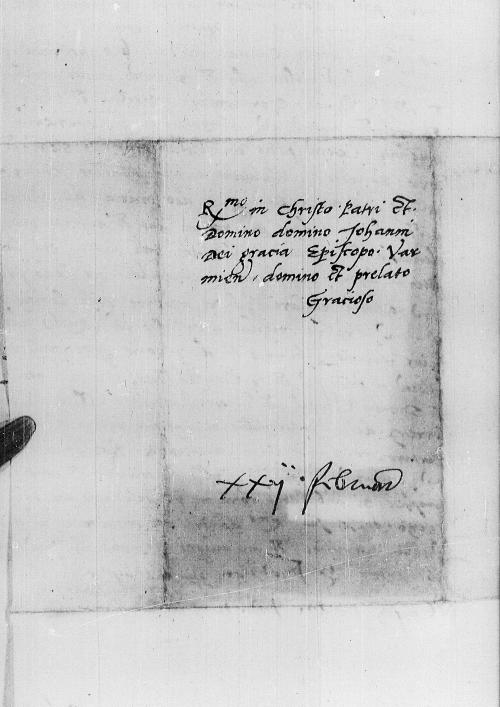 R^mo in Christo Patri Et
Domino domino Johanni
Dei gracia Episcopo Var
mien. domino Et prelato
Gracioso
xxij Februarii